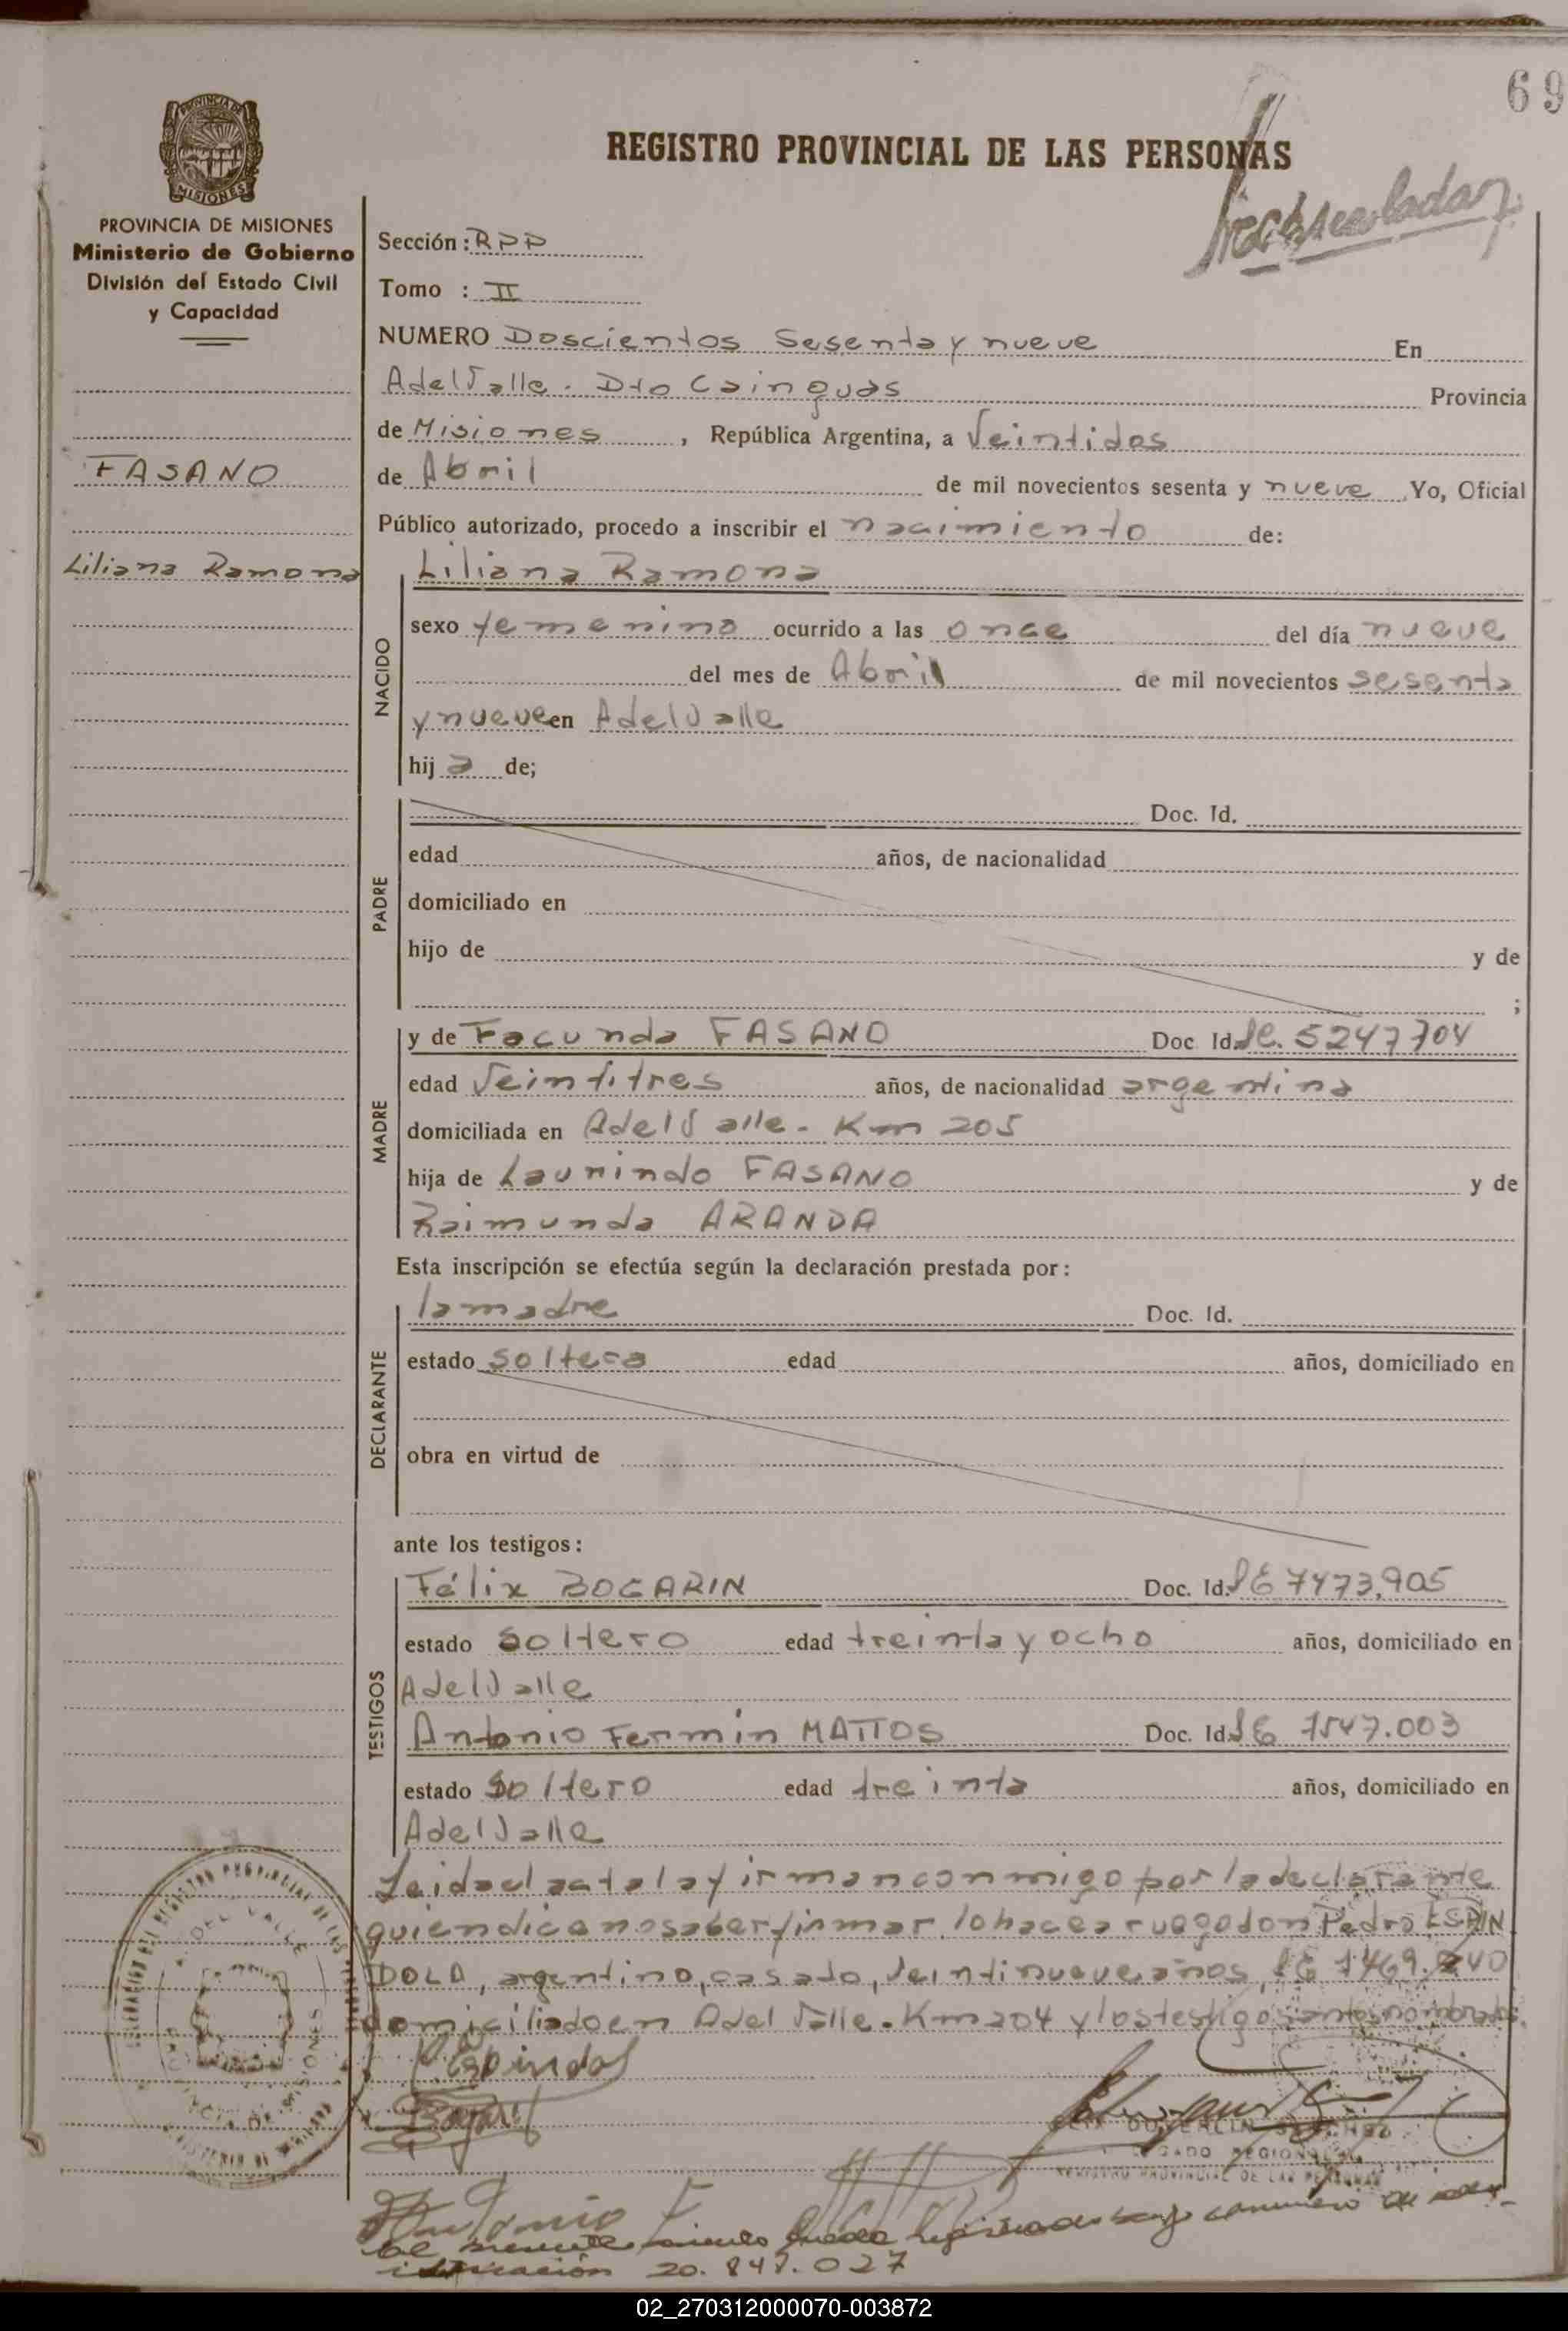 69
REGISTRO PROVINCIAL DE LAS PERSONAS
PROVINCIA DE
MISIONES
PROVINCIA DE MISIONES
Ministerio de Gobierno
División del Estado Civil
y Capacidad
FASANO
Liliana Ramona
Sección: RPP
Tomo : II
NUMERO Doscientos Sesenta y nueve En
AdelValle. Dto Cainguas Provincia
de Misiones, República Argentina, a Veintidos
de Abril de mil novecientos sesenta y nueve Yo, Oficial
Público autorizado, procedo a inscribir el nacimiento de:
NACIDO
Liliana Ramona
sexo femenino ocurrido a las once del día nueve
del mes de Abril de mil novecientos sesenta
y nueve en AdelValle
hija de;
PADRE
Doc. Id.
edad años, de nacionalidad
domiciliado en
hijo de y de
;
MADRE
y de Facunda FASANO Doc Id. 5247704
edad Veintitres años, de nacionalidad argentina
domiciliada en AdelValle. Km 205
hija de Laurindo FASANO y de
Raimunda ARANDA
Esta inscripción se efectúa según la declaración prestada por:
DECLARANTE
la madre Doc. Id.
estado soltera edad años, domiciliado en
obra en virtud de
ante los testigos:
TESTIGOS
Félix BOGARIN Doc. Id. LE 7473,905
estado soltero edad treinta y ocho años, domiciliado en
AdelValle
Antonio Fermin MATTOS Doc. Id. LE 7547.003
estado soltero edad treinta años, domiciliado en
AdelValle
Leida el acta la firman conmigo por la declarante
quien dice no saber firmar lo hace a ruego don Pedro ESPIN
DOLA, argentino, casado, veintinueve años, LE
domiciliado en Adel Valle. Km 204 y los testigos antes nombrados.
P. Espindola
Antonio F
REGISTRO PROVINCIAL DE LAS PERSONAS
queda registrado bajo
20. 847. 027
02_270312000070-003872